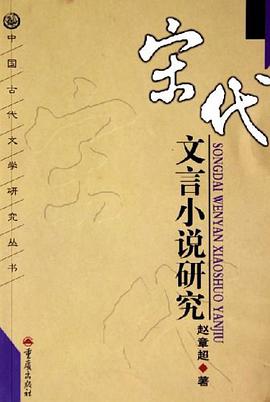 宋代
文言小说研究
SONGDAI WENYAN XIAOSHUO YANJIU
赵章超◆著
中国古代文学研究丛书
重庆出版社